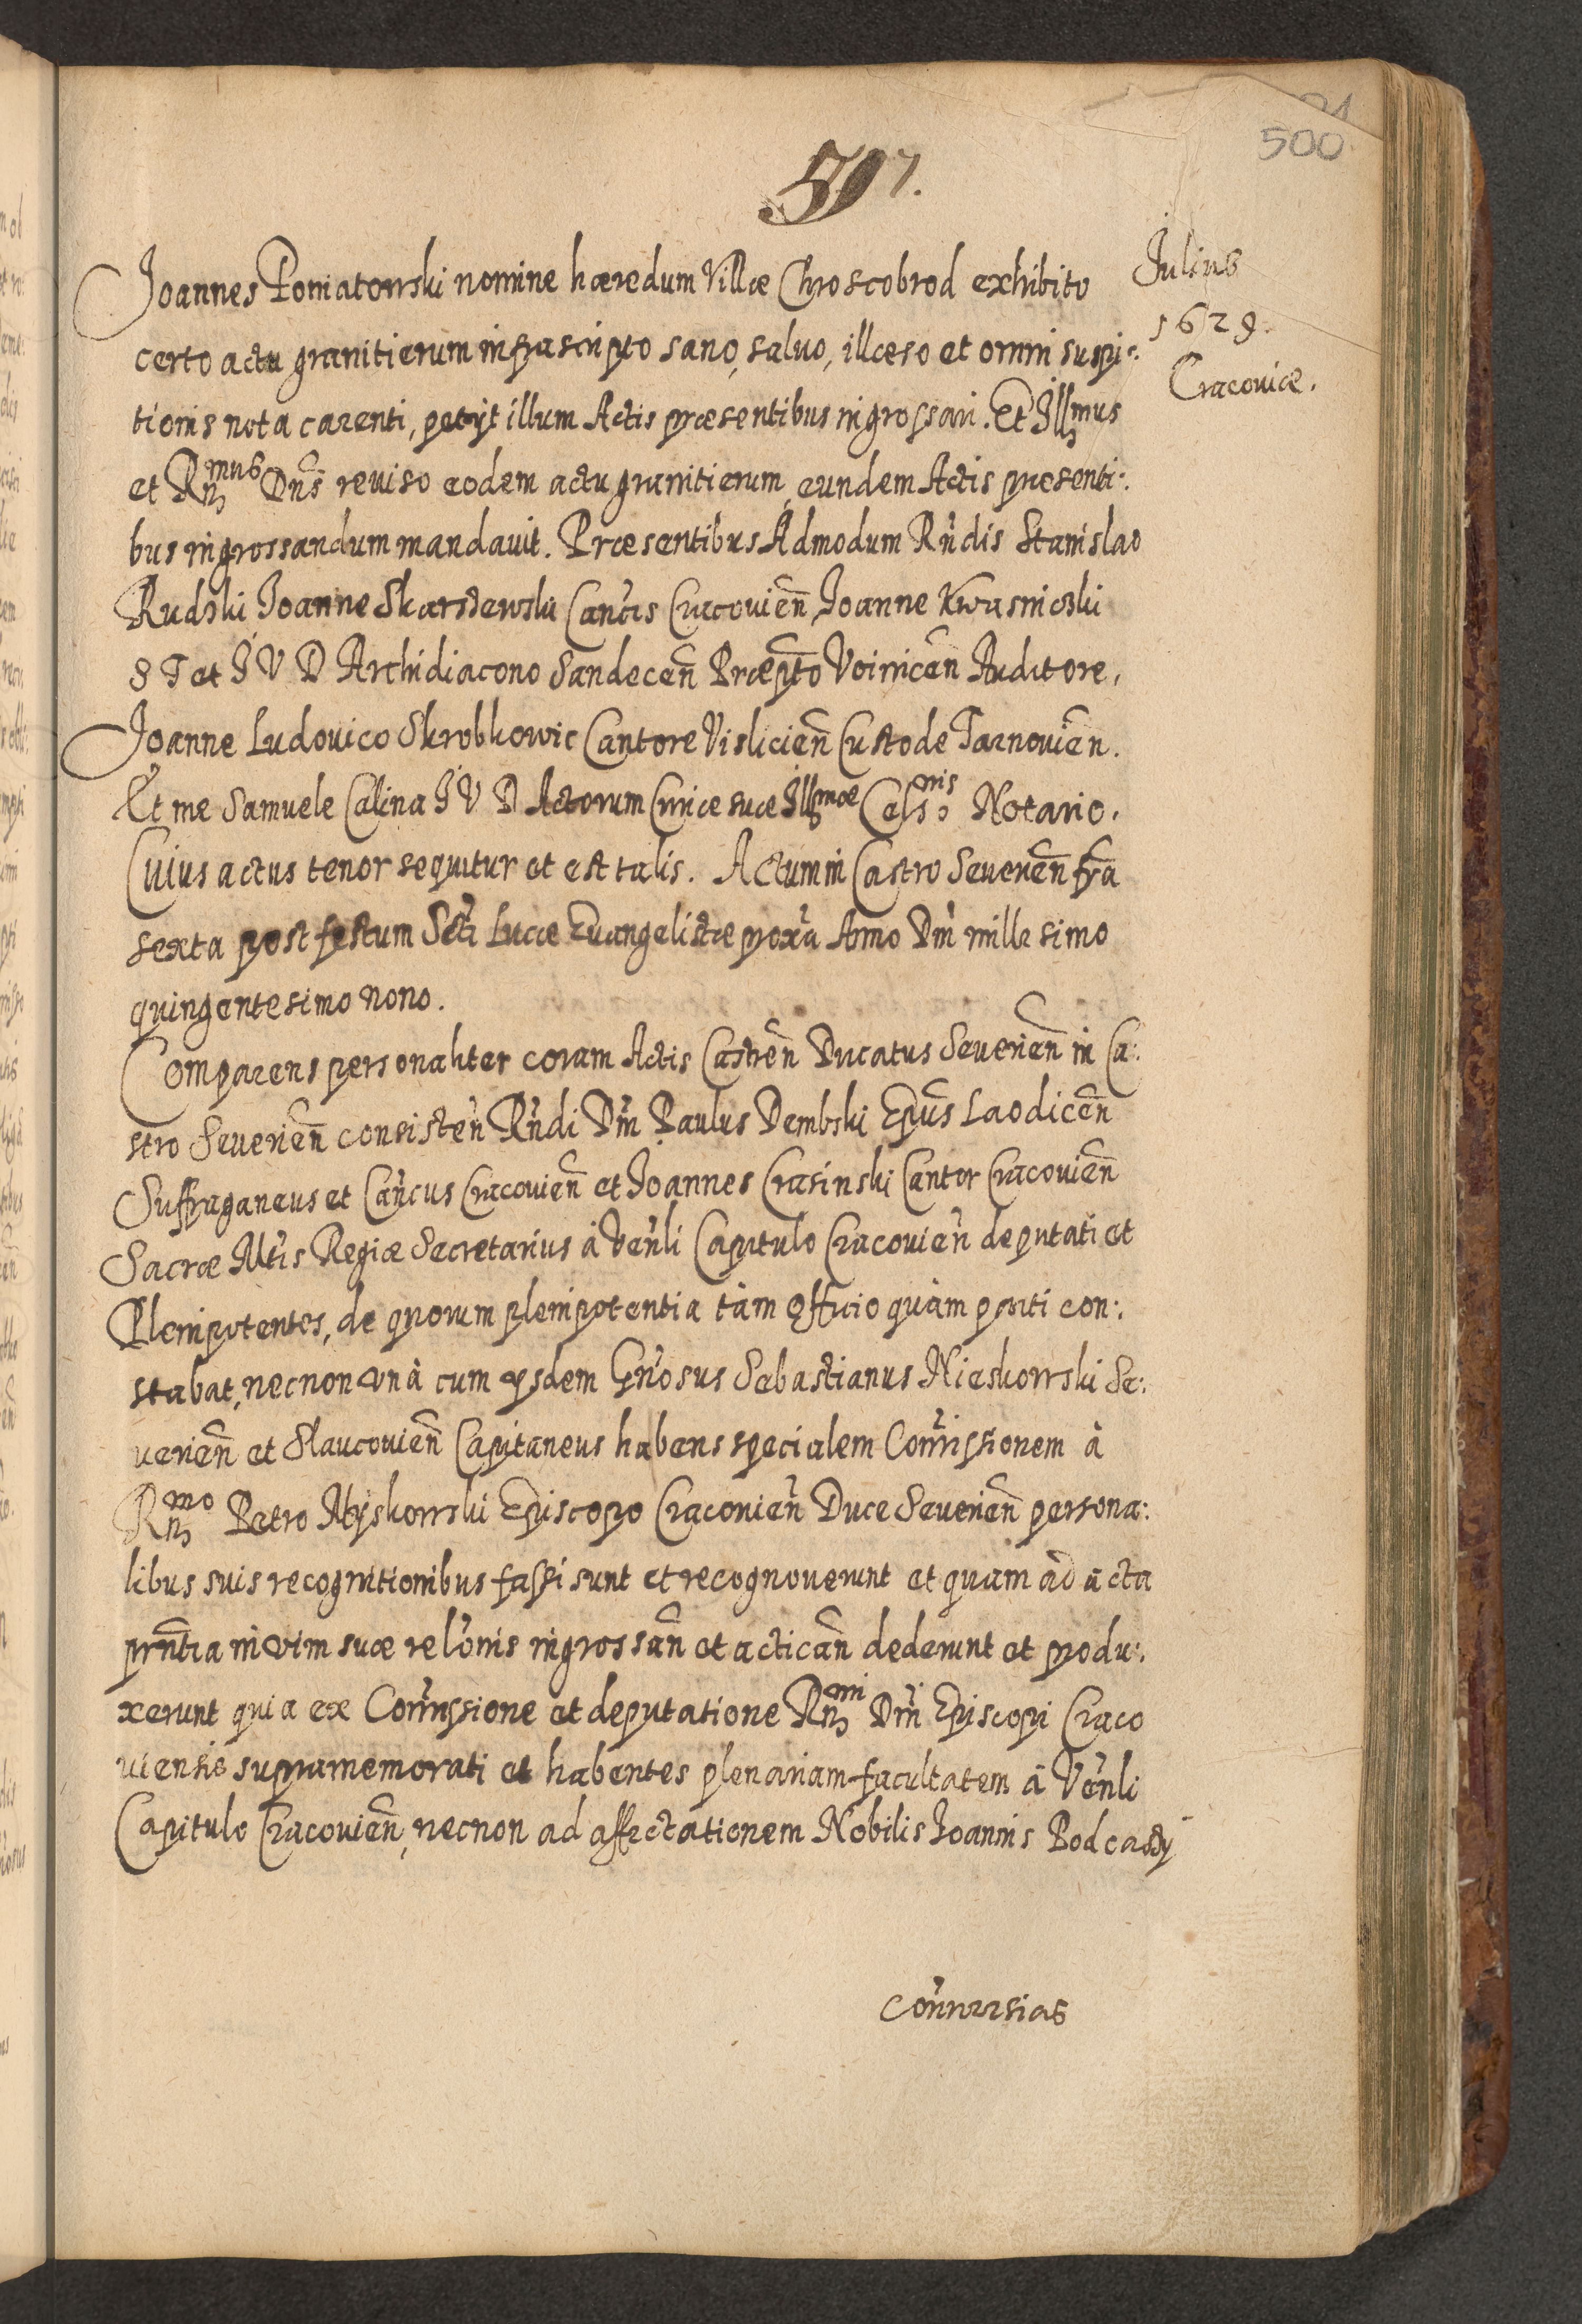 500
597.
Julius
1629.
Cracoviæ.
Joannes Poniatowski nomine hæredum Villæ Chroscobrod exhibito
certo actu granitierum infrascripto sano, saluo, illæso et omni suspi:
tionis nota carenti, petijt illum Actis præsentibus ingrossari. Et Illmus
et Rmus Dns reuiso eodem actu granitierum, eundem Actis præsenti:
bus ingrossandum mandauit. Præsentibus Admodum Rndis Stanislao
Rudzki Joanne Skarszewski Cancis Cracouien Joanne Kwasnicski
S T et J V D Archidiacono Sandecen Præpto Voinicen Auditore,
Joanne Ludouico Skrobkowic Cantore Vislicien Custode Tarnouien.
Et me Samuele Calina J V D Actorum Curiæ suæ Illmæ Celsnis Notario.
Cuius actus tenor sequitur et est talis. Actum in Castro Seuerien fra
sexta post festum Scti Lucæ Euangelistæ proxa Anno Dni millesimo
quingentesimo nono.
Comparens personaliter coram Actis Castren Ducatus Seuerien in Ca:
stro Seuerien consisten Rndi Dni Paulus Dembski Epus Laodicen
Suffraganeus et Cancus Cracouien et Joannes Crasinski Cantor Cracouien
Sacræ Mtis Regiæ Secretarius à Venli Capitulo Cracouien deputati et
Plenipotentes, de quorum plenipotentia tàm Officio quàm parti con:
stabat, necnon vnà cum ysdem Gnosus Sebastianus Nieskowski Se:
uerien et Slaucouien Capitaneus habens specialem Comissionem à
Rmo Petro Myskowski Episcopo Cracouien Duce Seuerien persona:
libus suis recognitionibus fassi sunt et recognouerunt et quam ad acta
prntia in vim suæ relonis ingrossan et actican dederunt et produ:
xerunt quia ex Comissione et deputatione Rmi Dni Episcopi Craco
uiensis supramemorati et habentes plenariam facultatem à Venli
Capitulo Cracouien, necnon ad affectationem Nobilis Joannis